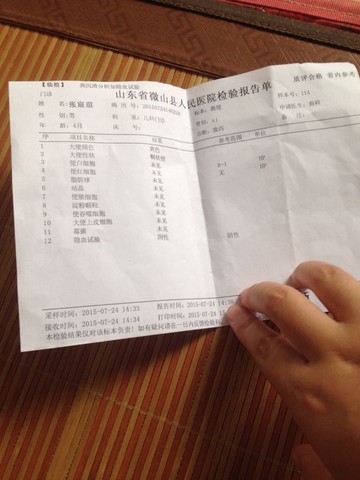 【临检】 粪沉渣分析加隐血试验
门诊 山东省微山县人民医院检验报告单 质评合格 省内参考
姓 名: 病历号: 标本: 粪便 样本号: 114
性 别: 男 科 室: 儿科门诊 申请医生:
年 龄: 4月 床 号: 诊断: 腹泻 备 注:
项目名称 结果 参考范围 单位
1 大便颜色 黄色
2 大便性状
3 便白细胞 未见 0-1 HP
4 便红细胞 未见 无 HP
5 脂肪球 未见
6 结晶 未见
7 便脓细胞 未见
8 淀粉颗粒 未见
9 便吞噬细胞 未见
10 大便上皮细胞 未见
11 霉菌 未见
12 隐血试验 阴性 阴性
采样时间: 2015-07-24 14:33 报告时间: 2015-07-24 14:36
接收时间: 2015-07-24 14:34 打印时间: 2015-07-24
本检验结果仅对该标本负责! 如有疑问请在一日内反馈检验